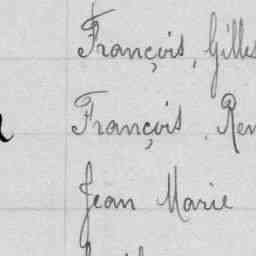 François, Gilles
François, Ren
Jean Marie